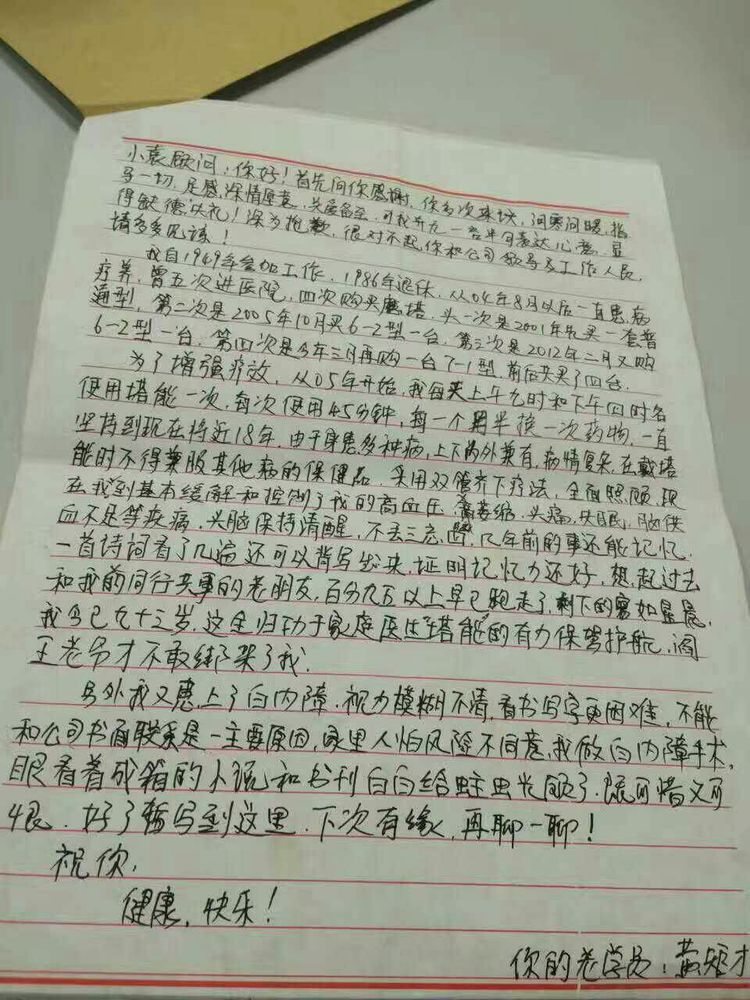 小袁顾问:你好!首先向你感谢,你多次来块,问寒问暖,指
一切,足感深情厚意,关爱备至,可我九一否半句表达心意,显
得缺德失礼!深为抱歉,很对不起你和公司领导及工作人员,
请多多见谅!
我自1949年参加工作,1986年退休,从04年8月以后一直患病
疗养,曾五次进医院,四次购买塔,头一次是2001年先买一套普
通型,第二次是2005年10月买6-2型一台,第三次是2012年二月又购
6-2型一台,第四次是今年三月再购一台7-1型,前后共买了四台.
为了增强疗效,从05年开始,我每天上午九时和下午四时各
使用塔能一次,每次使用45分钟,每一个月半换一次药物,一直
坚持到现在将近18年,由于身患多种病,上下内外兼有,病情复杂,在戴塔
能时不得兼服其他病的保健品,采用双管齐下疗法,全面照顾,现
在我到基本缓解和控制了我的高血压,萎缩,头痛,失眠,脑供
血不足等疾病,头脑保持清醒,不丢三忘四,几年前的事还能记忆,
一首诗词看了几遍还可以背写出来,证明记忆力还好,想起过去
和我前同行共事的老朋友,百分九五以上早已跑走了,剩下的寥如星晨,
我今已九十三岁,这全归功于家庭医生"塔能"的有力保驾护航,阎
王老爷才不敢绑架了我.
另外我又患上了白内障,视力模糊不清,看书写字更困难,不能
和公司书面联系是一主要原因,家里人怕风险不同意我做白内障手术,
眼看着成箱的小说和书刊白白给蛀虫光顾了,既可惜又可
恨.好了暂写到这里,下次有缘,再聊一聊!
祝你,
健康,快乐!
你的老学员:黄矩才